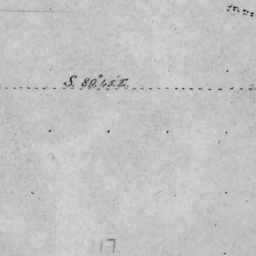 S. 89° 45' E.
17